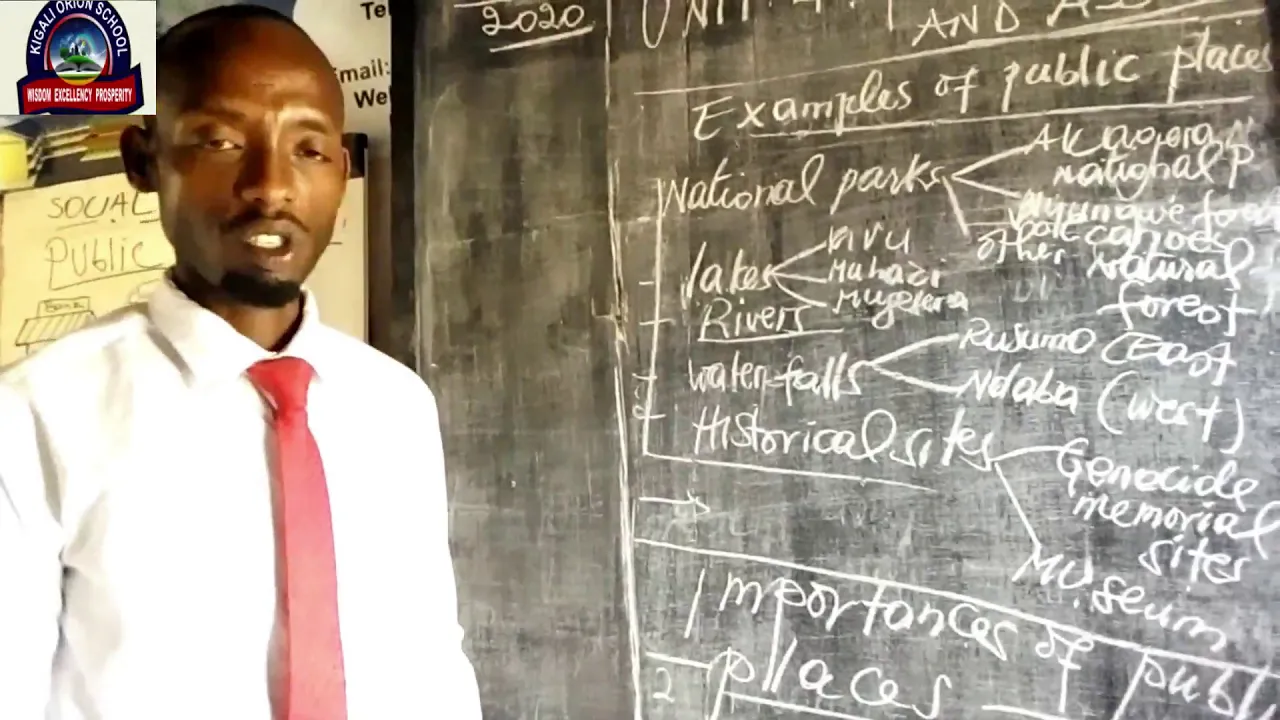 KIGALI ORION SCHOOL
WISDOM EXCELLENCY PROSPERITY
Tel
Email:
Wel
SOCIAL
PUBLIC
2020
UNIT
AND
Examples of public places
National parks
national P
Nyungwe forest
other natural
forest
lakes
kivu
Muhazi
Mugesera
Rivers
water falls
Rusumo (East
Ndaba (west)
Historical sites
Genocide
memorial
sites
Museum
Importances of publ
2
places